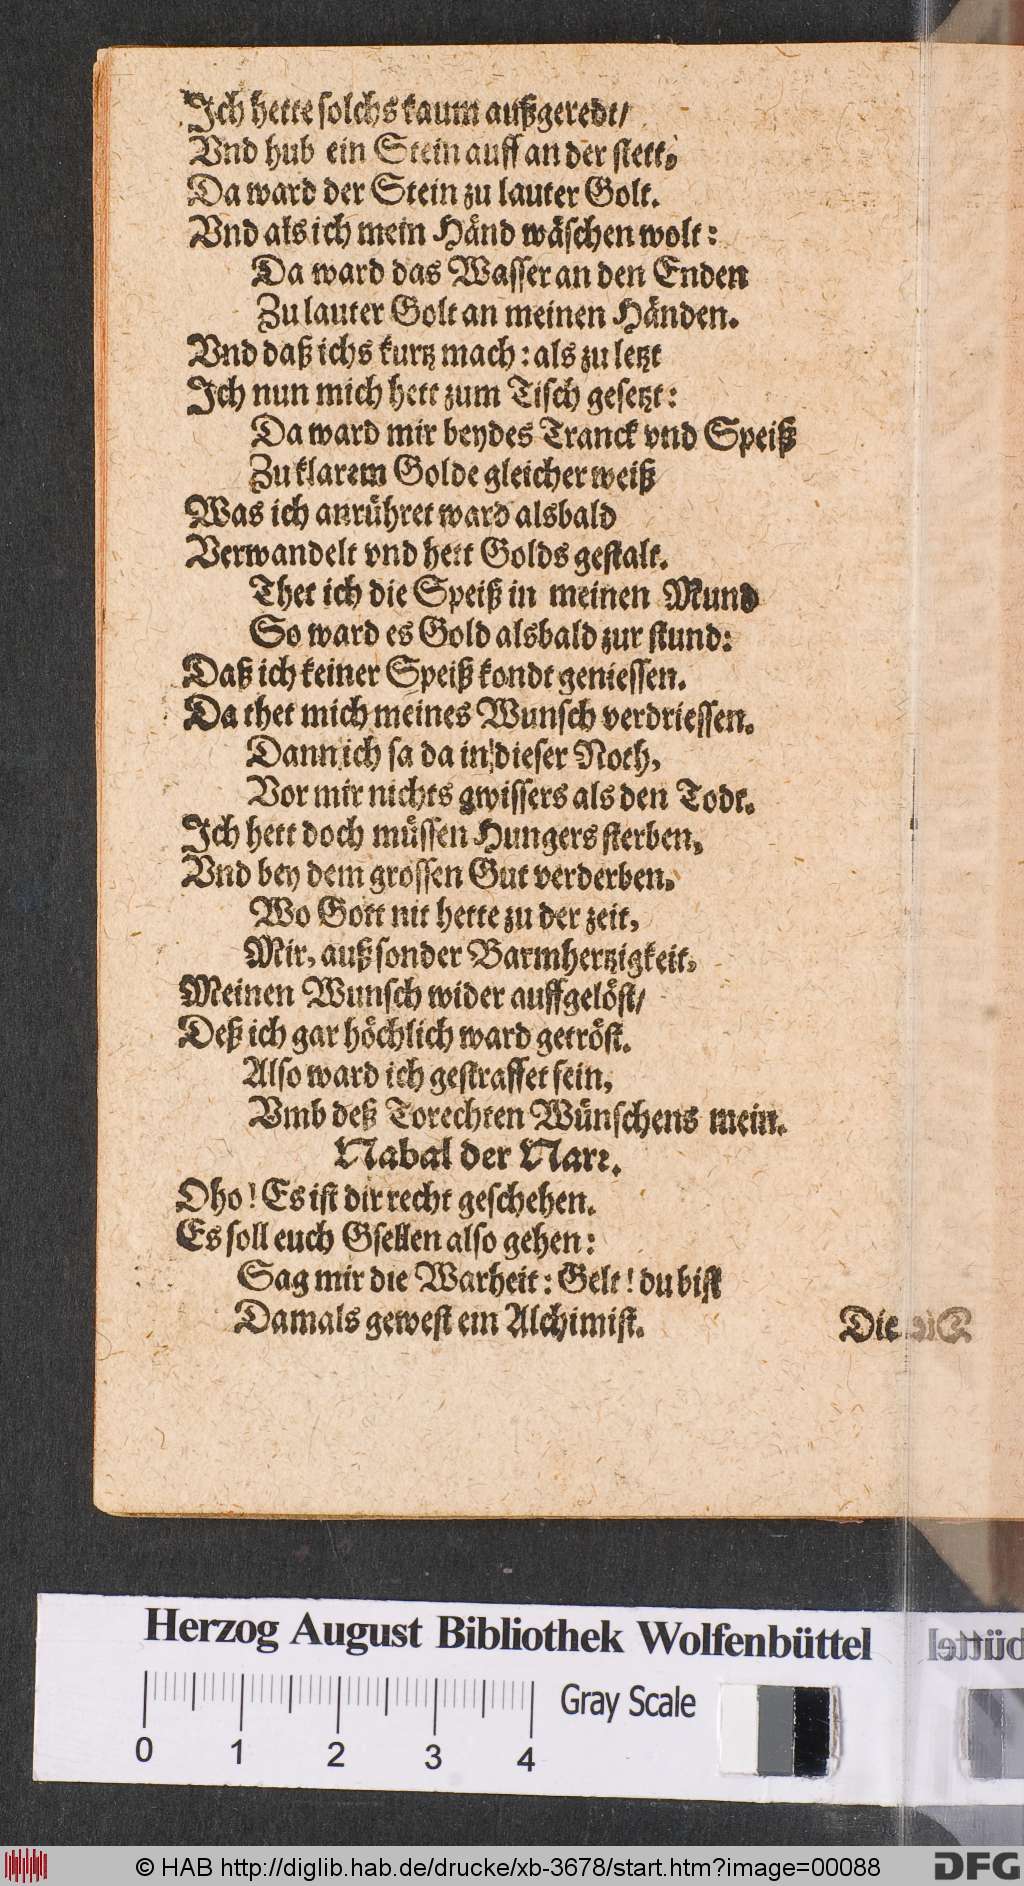 Ich hette solchs kaum außgeredt/
Vnd hub ein Stein auff an der stett,
Da ward der Stein zu lauter Golt.
Vnd als ich mein Händ wäschen wolt:
Da ward das Wasser an den Enden
Zu lauter Golt an meinen Händen.
Vnd daß ichs kurtz mach: als zu letzt
Ich nun mich hett zum Tisch gesetzt:
Da ward mir beydes Tranck vnd Speiß
Zu klarem Golde gleicher weiß
Was ich anrühret ward alsbald
Verwandelt vnd hett Golds gestalt.
Thet ich die Speiß in meinen Mund
So ward es Gold alsbald zur stund:
Daß ich keiner Speiß kondt geniessen.
Da thet mich meines Wunsch verdriessen.
Dann ich sa da in dieser Noth,
Vor mir nichts gwissers als den Todt.
Ich hett doch müssen Hungers sterben,
Vnd bey dem grossen Gut verderben,
Wo Gott nit hette zu der zeit,
Mir, auß sonder Barmhertzigkeit,
Meinen Wunsch wider auffgelöst/
Deß ich gar höchlich ward getröst.
Also ward ich gestraffet fein,
Vmb deß Torechten Wünschens mein.
Nabal der Narr.
Oho! Es ist dir recht geschehen.
Es soll euch Gsellen also gehen:
Sag mir die Warheit: Gelt! du bist
Damals gewest ein Alchimist.
Die
Herzog August Bibliothek Wolfenbüttel
0 1 2 3 4 Gray Scale
© HAB http://diglib.hab.de/drucke/xb-3678/start.htm?image=00088
DFG